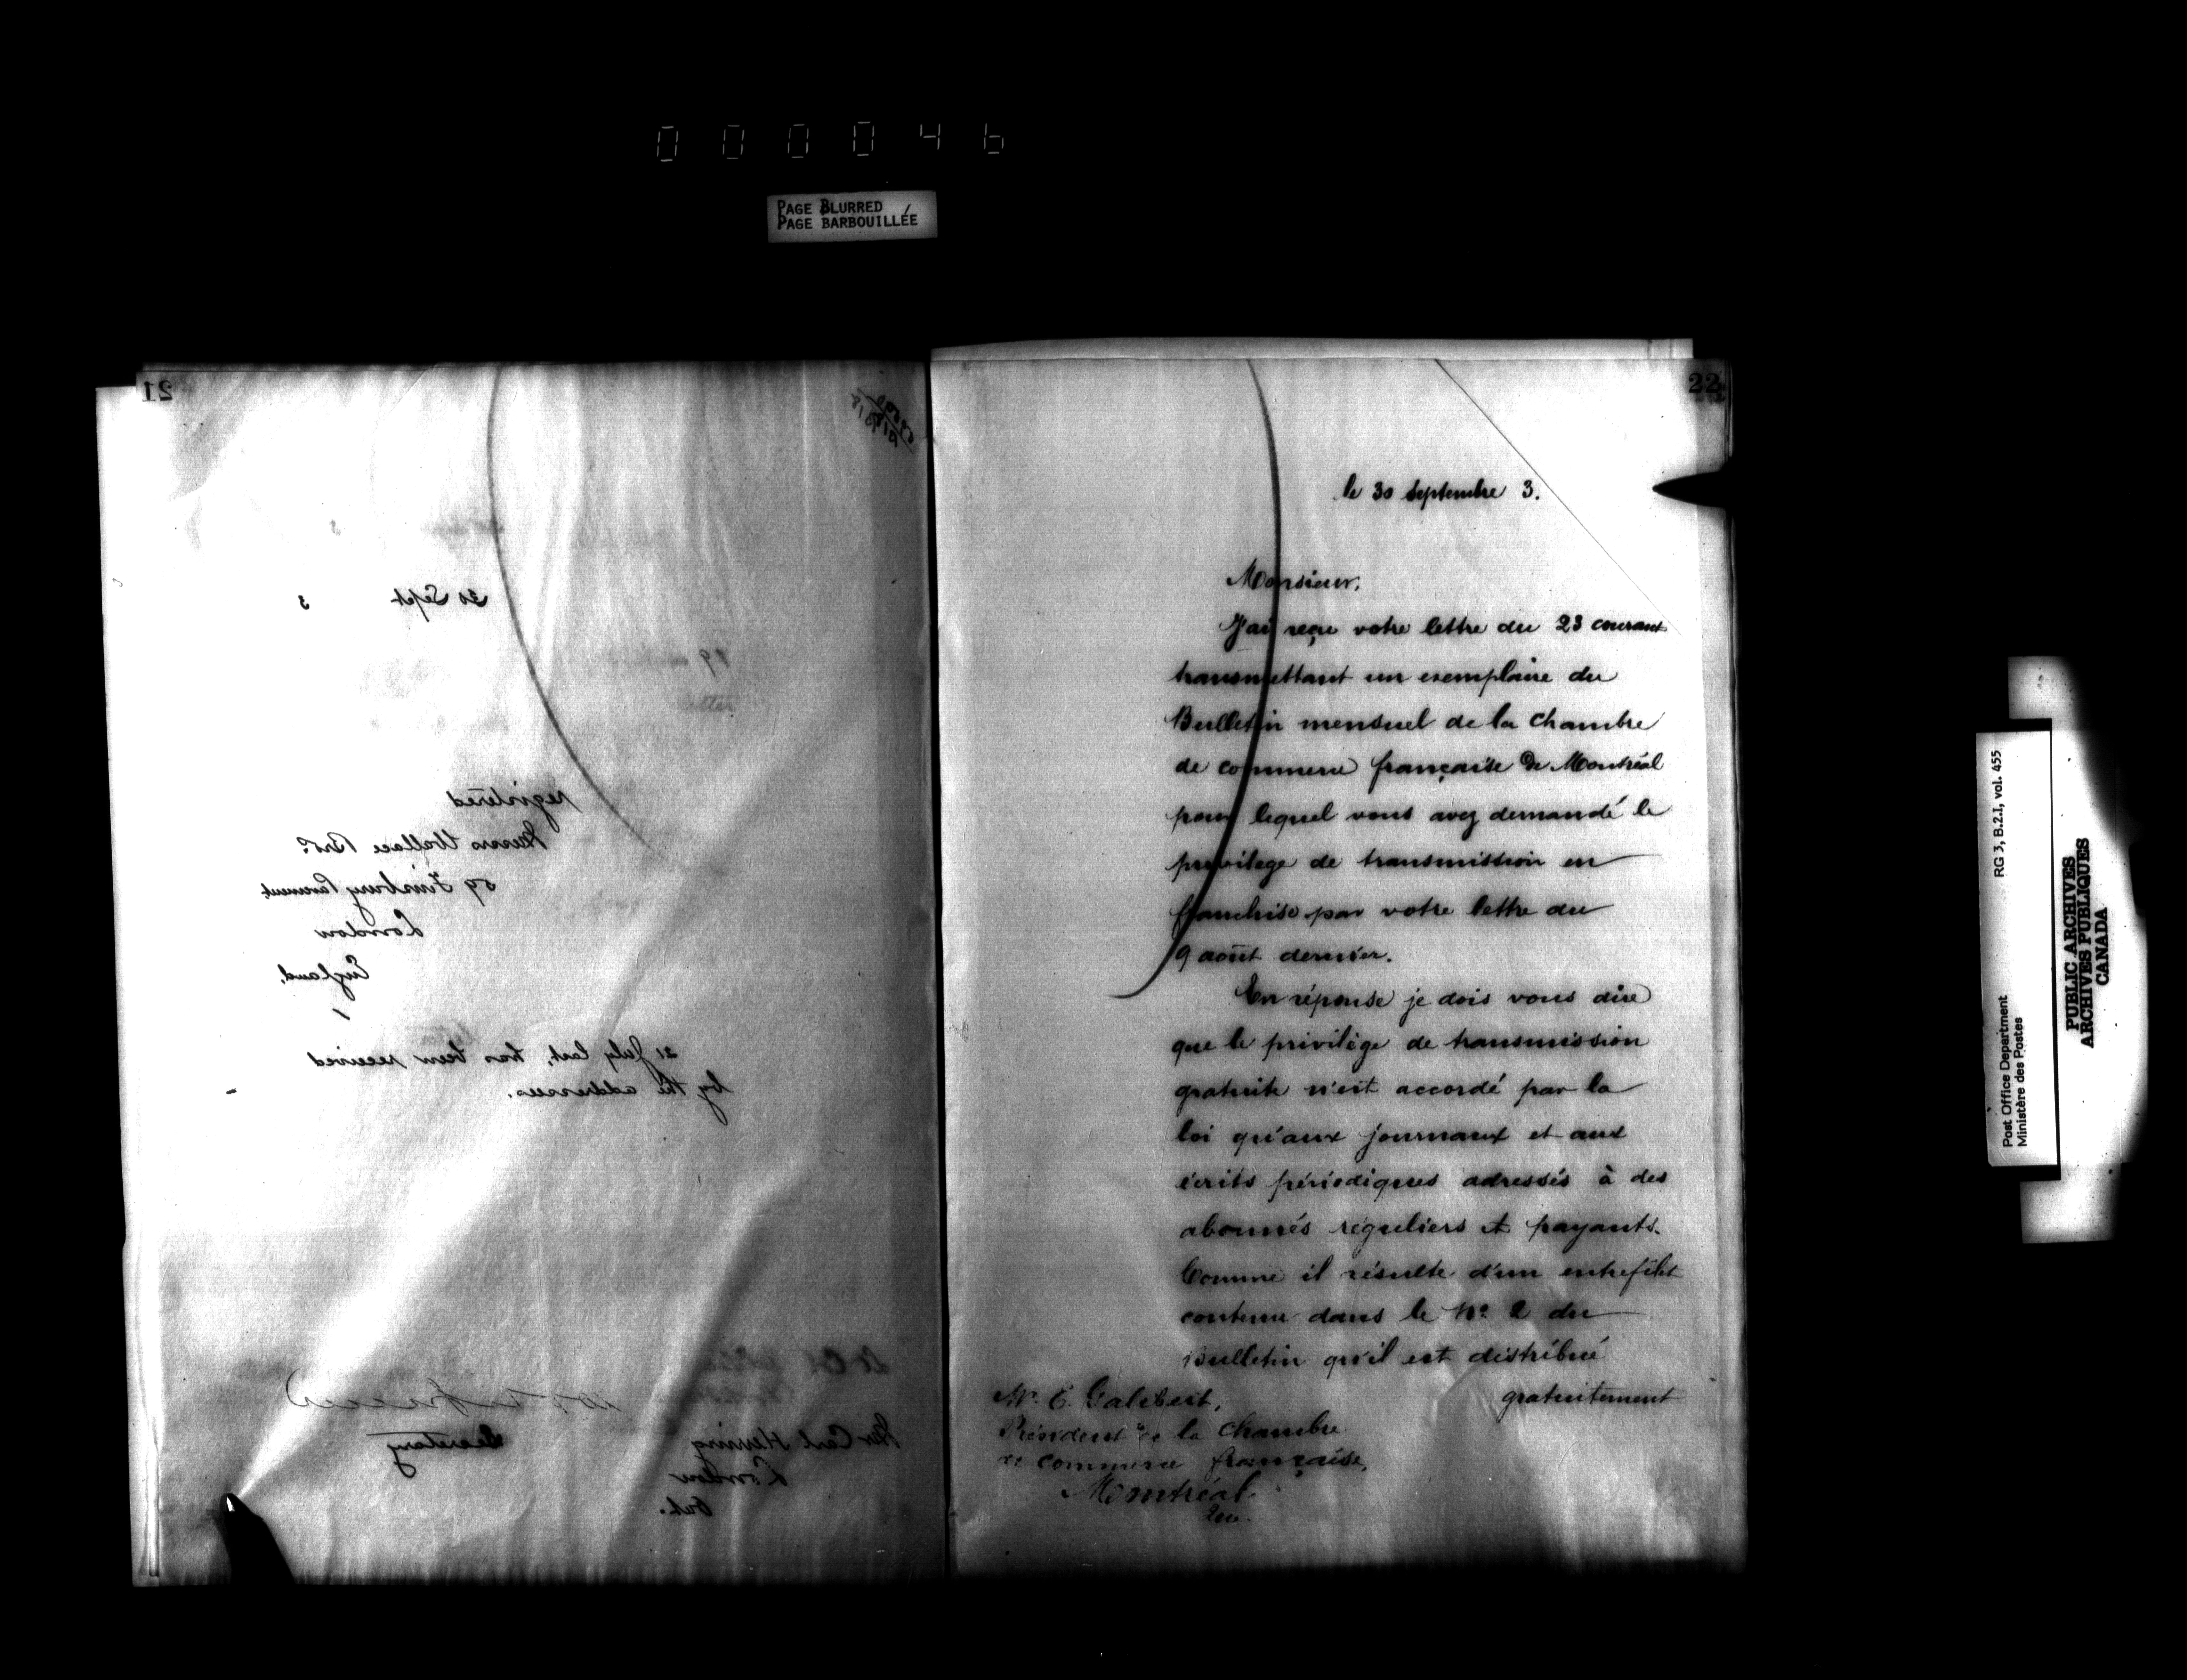 000046
PAGE BLURRED
PAGE BARBOUILLÉE
21
30 Sept 3
registered
Messrs Wallace Bros.
59 Finsbury Pavement
London
England,
21 July last, has been received
by the addressees.
Secretary
Mr Carl Henning
London
Ont.
22
le 30 septembre 3.
Monsieur,
J'ai reçu votre lettre du 23 courant
transmettant un exemplaire du
Bulletin mensuel de la Chambre
de commerce française de Montréal
pour lequel vous avez demandé le
privilege de transmission en
franchise par votre lettre du
9 août dernier.
En réponse je dois vous dire
que le privilège de transmission
gratuite n'est accordé par la
loi qu'aux journaux et aux
écrits périodiques adressés à des
abonnés réguliers et payants.
Comme il résulte d'un entrefilet
contenu dans le No. 2 du
Bulletin qu'il est distribué
gratuitement
Mr. E. Galibert,
Président de la Chambre
de commerce française,
Montréal.
Que.
Post Office Department RG 3, B.2.1, vol. 455
Ministère des Postes
PUBLIC ARCHIVES
ARCHIVES PUBLIQUES
CANADA